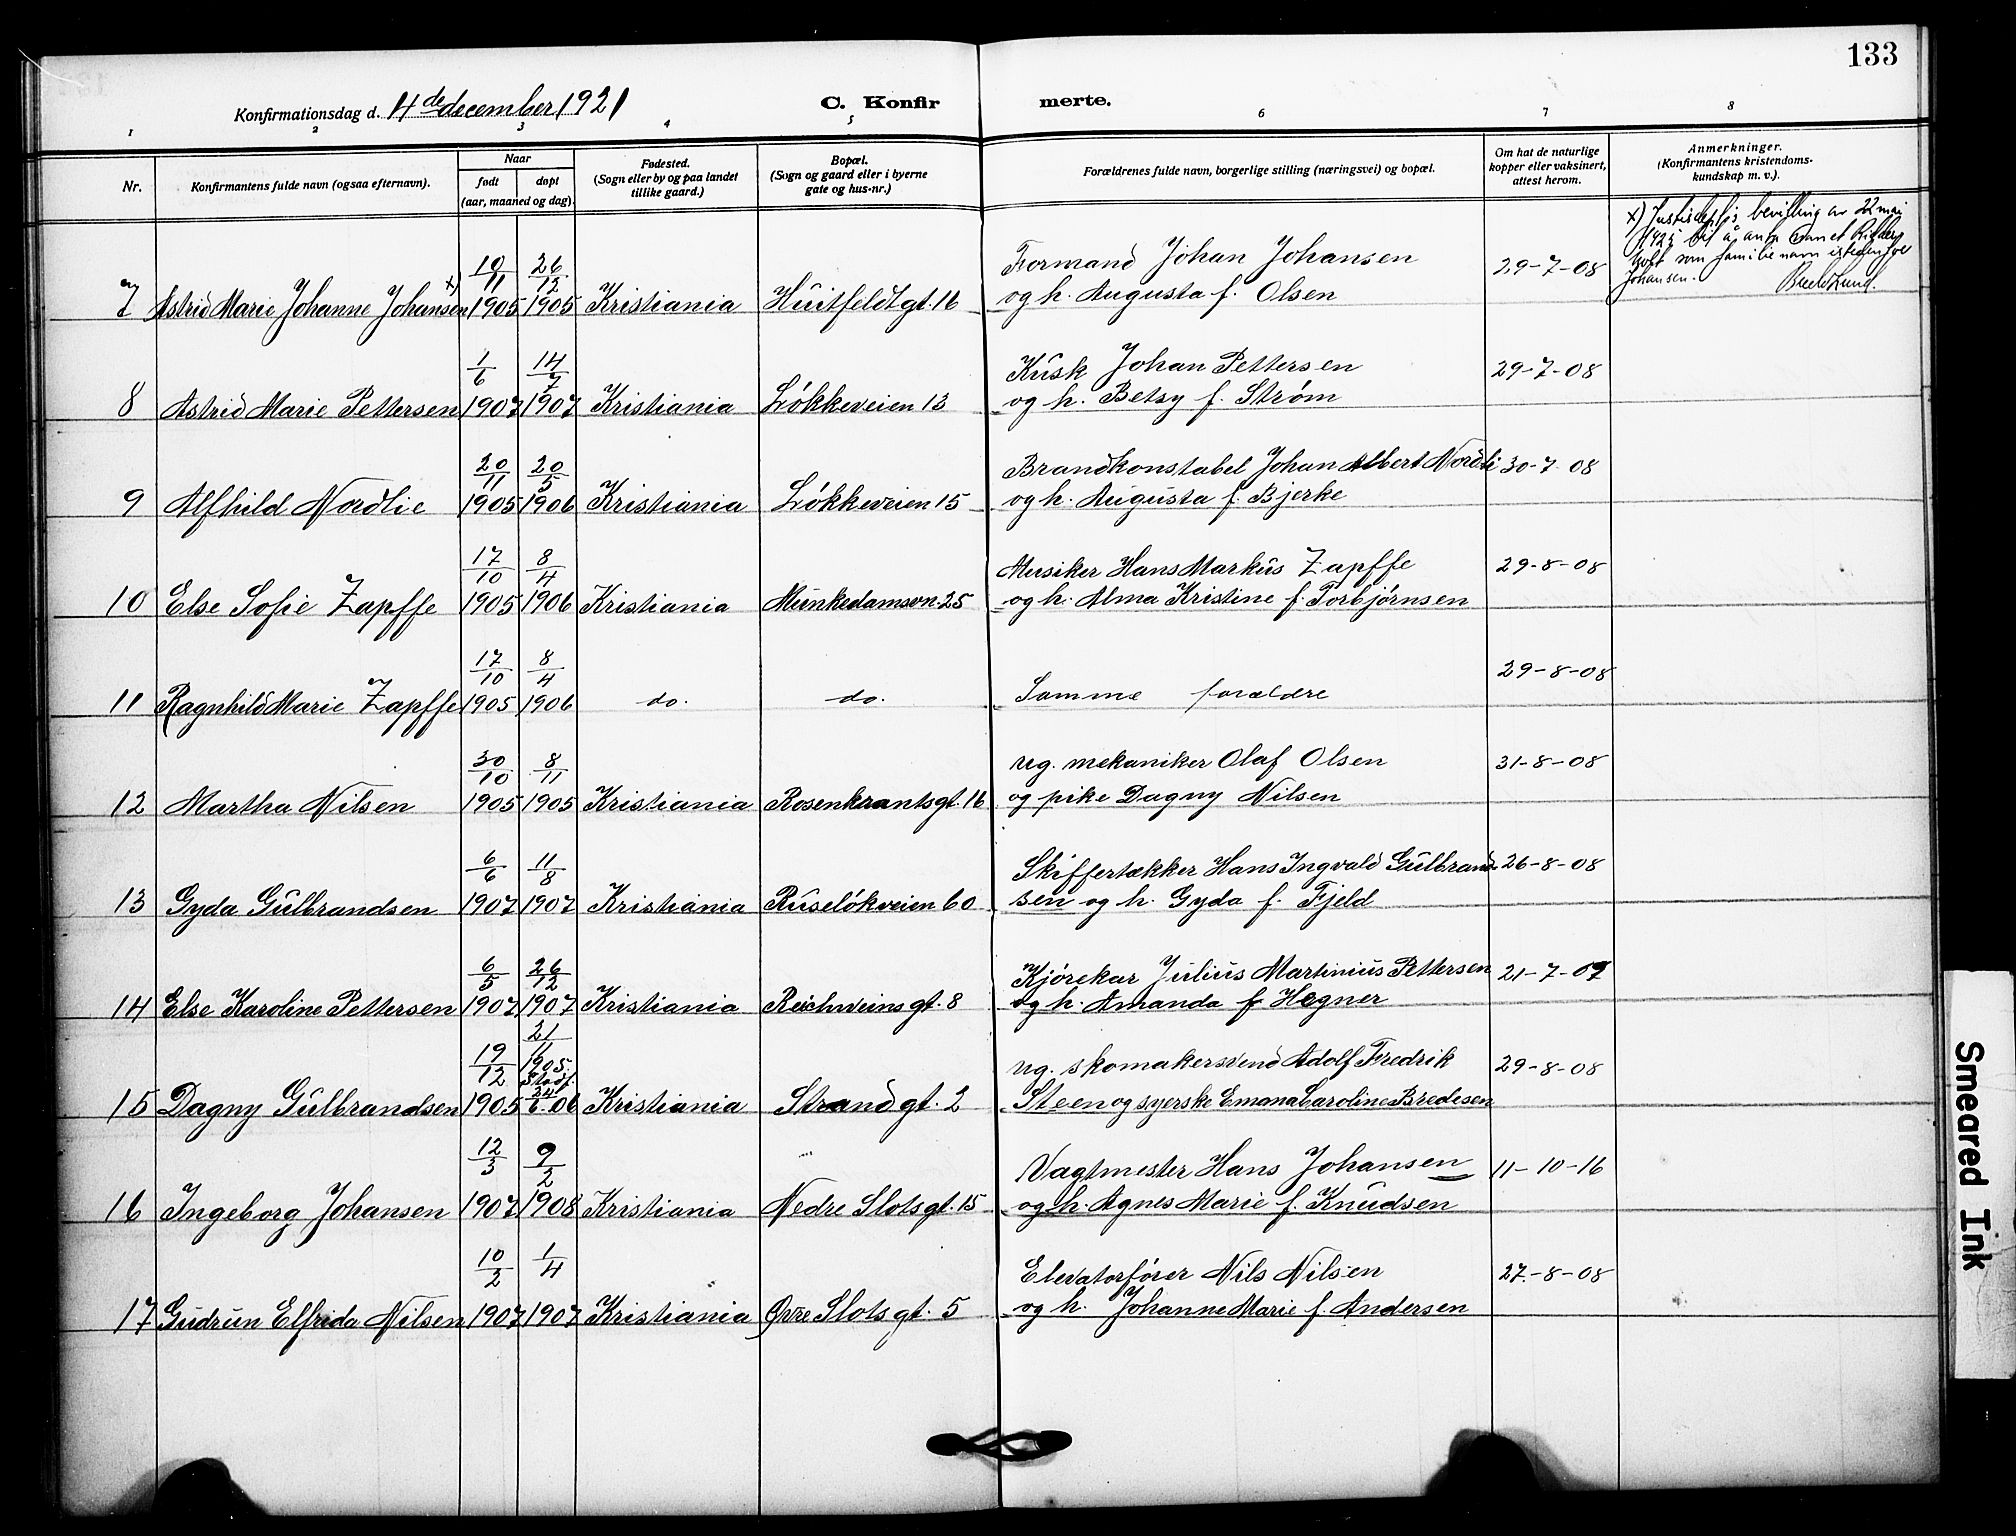 133
Konfirmationsdag d. 4de december 1921
C. Konfir merte.
1 2 3 4 5 6 7 8
Nr.
Konfirmantens fulde navn (ogsaa efternavn).
Naar
født døpt
(aar, maaned og dag).
Fødested.
(Sogn eller by og paa landet
tillike gaard.)
Bopæl.
(Sogn og gaard eller i byerne
gate og hus-nr.)
Forældrenes fulde navn, borgerlige stilling (næringsvei) og bopæl.
Om hat de naturlige
kopper eller vaksinert,
attest herom.
Anmerkninger.
(Konfirmantens kristendoms-
kundskap m. v.).
x) Justisdep. bevilling av 22 mai
som familienavn istedenfor
Johansen.
19/11 26/12 Formand Johan Johansen 29-7-08
7 Astrid Marie Johanne Johansen x) 1905 1905 Kristiania Huitfeldtgt. 16 og h. Augusta f. Olsen
1/6 14/7 Kusk Johan Pettersen 29-7-08
8 Astrid Marie Pettersen 1907 1907 Kristiania Løkkeveien 13 og h. Betsy f. Strøm
20/11 20/5 Brandkonstabel Johan Albert Nordli 30-7-08
9 Alfhild Nordlie 1905 1906 Kristiania Løkkeveien 15 og h. Augusta f. Bjerke
17/10 8/4 Musiker Hans Markus Zapffe 29-8-08
10 Else Sofie Zapffe 1905 1906 Kristiania Munkedamsvn. 25 og h. Alma Kristine f. Torbjørnsen
17/10 8/4 29-8-08
11 Ragnhild Marie Zapffe 1905 1906 do. do. Samme forældre
30/10 8/11 ug. mekaniker Olaf Olsen 31-8-08
12 Martha Nilsen 1905 1905 Kristiania Rosenkrantsgt. 16 og pike Dagny Nilsen
6/6 11/8 Skiffertækker Hans Ingvald Gulbrand- 26-8-08
13 Gyda Gulbrandsen 1907 1907 Kristiania Ruseløkveien 60 sen og h. Gyda f. Fjeld
6/5 26/12 Kjørekar Julius Martinius Pettersen 21-7-09
14 Else Karoline Pettersen 1907 1907 Kristiania Reichweinsgt. 8 og h. Amanda f Hegner
19/12 21/11 1905. Stadf. ug. skomakersvend Adolf Fredrik 29-8-08
15 Dagny Gulbrandsen 1905 24/6.06 Kristiania Strandgt. 2 Steen og syerske Emana Caroline Bredesen
12/3 9/2 Vagtmester Hans Johansen 11-10-16
16 Ingeborg Johansen 1907 1908 Kristiania Nedre Slotsgt. 15 og h. Agnes Marie f. Knudsen
10/2 1/4 Elevatorfører Nils Nilsen 27.-8-08
17 Gudrun Elfrida Nilsen 1907 1907 Kristiania Øvre Slotsgt. 5 og h. Johanne Marie f. Andersen
Smeared Ink